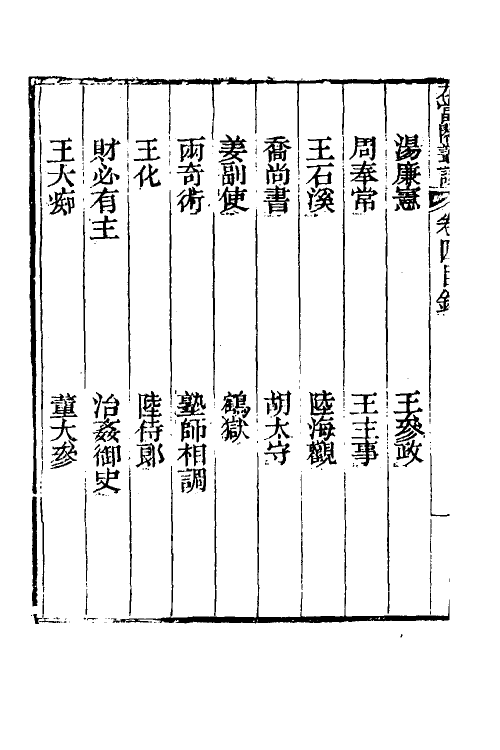 卷四目錄
湯廉憲 王參政
周奉常 王主事
王石溪 陸海觀
喬尚書 胡太守
姜副使 鵝獄
兩奇術 塾師相調
王化 陸侍郎
財必有主 治姦御史
王大痴 董大參